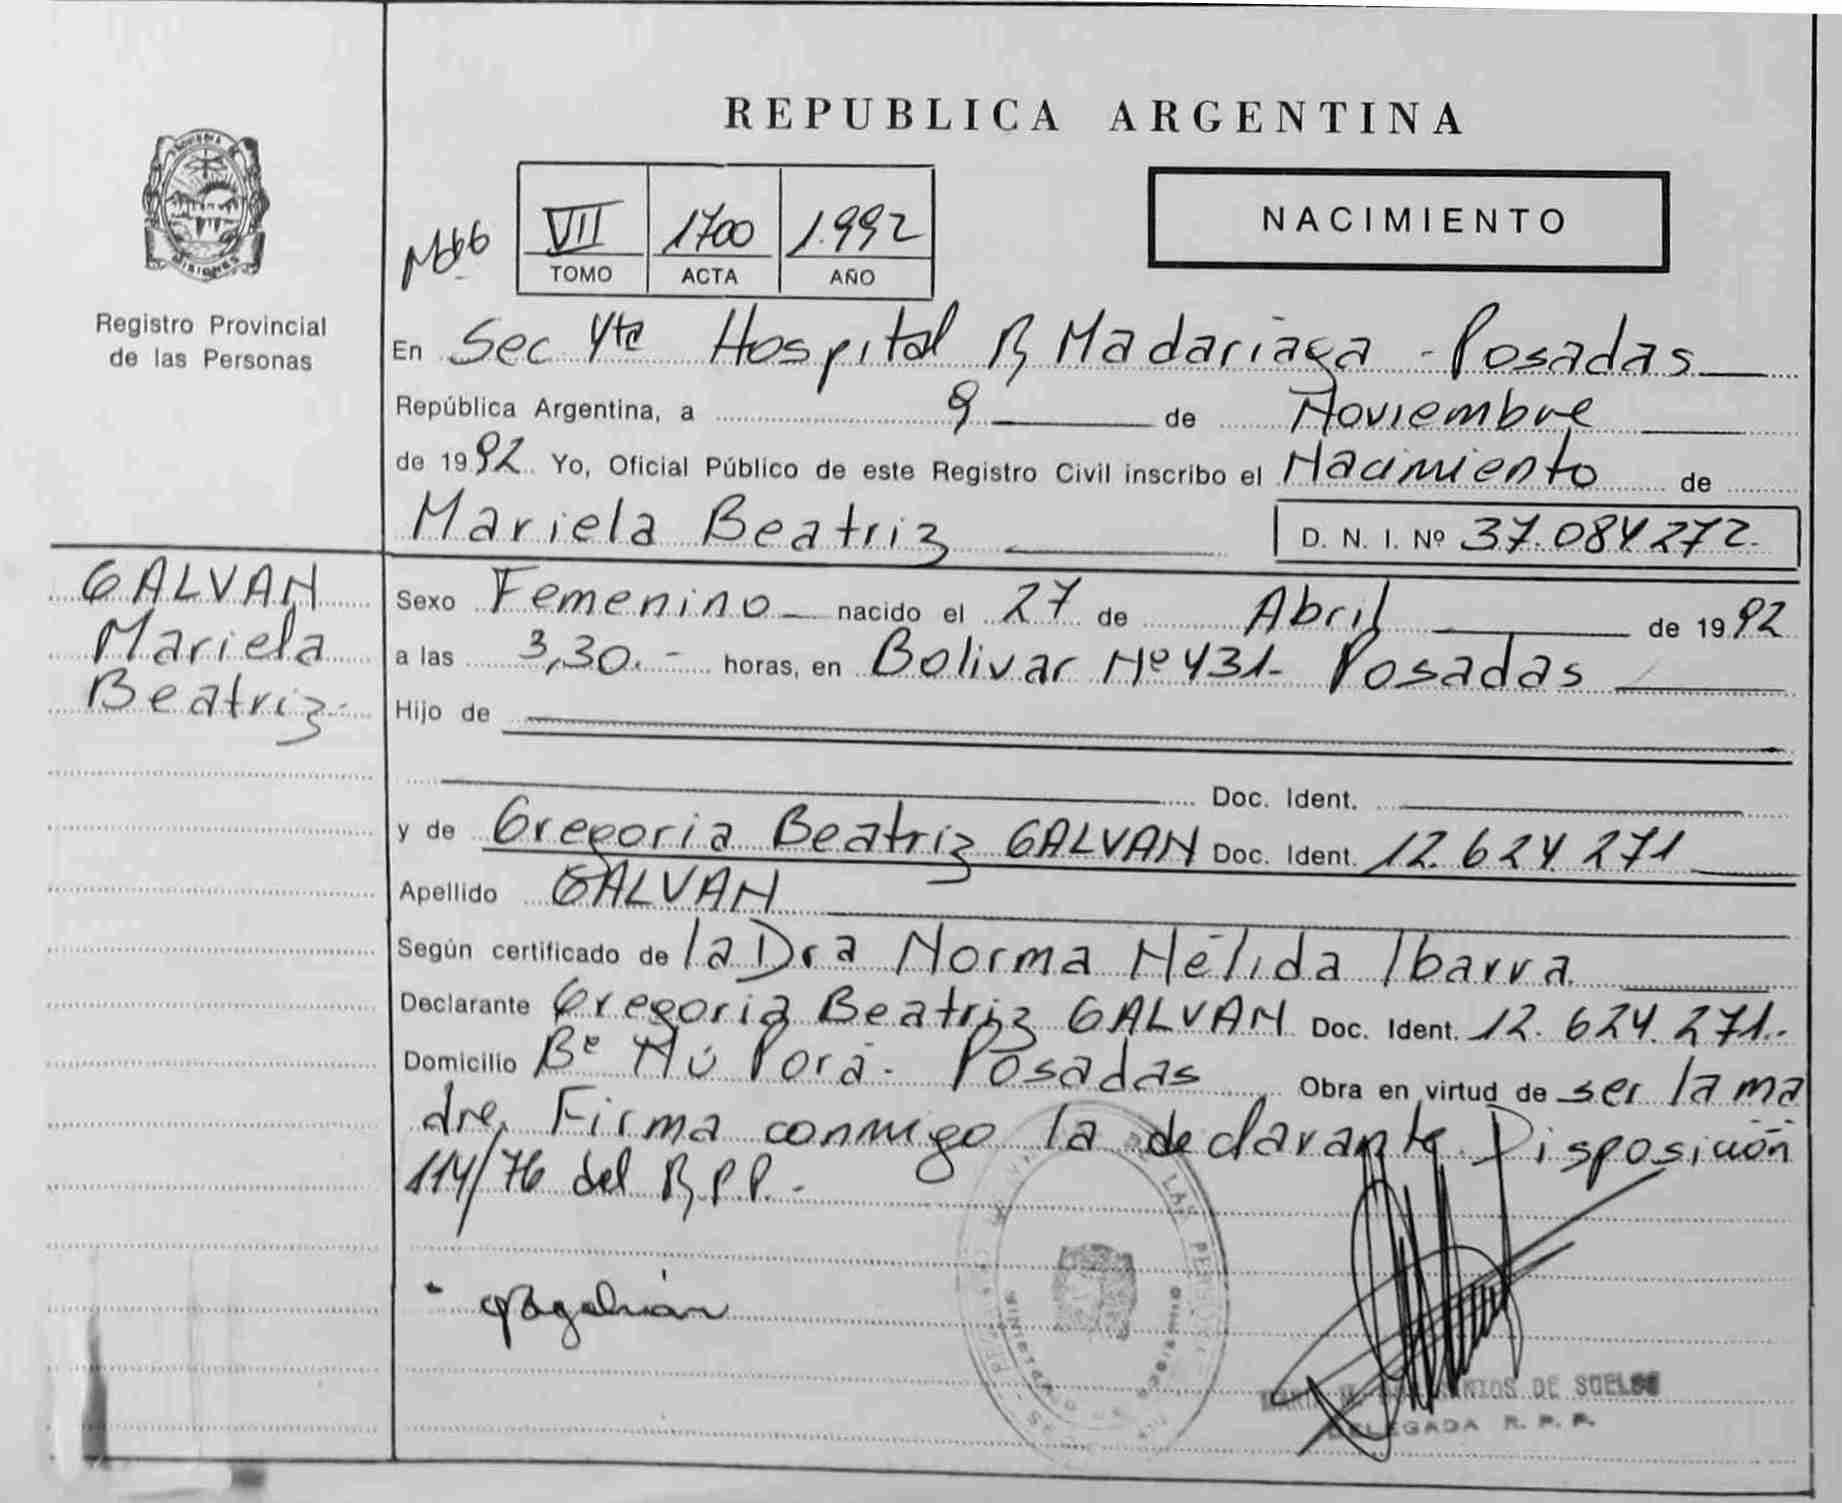 REPUBLICA ARGENTINA
MISIONES
Registro Provincial
de las Personas
VII 1700 1.992
TOMO ACTA AÑO
NACIMIENTO
En Sec 4ta Hospital R Madariaga - Posadas
República Argentina, a 9 de Noviembre
de 1992 Yo, Oficial Público de este Registro Civil inscribo el Nacimiento de
Mariela Beatriz D. N. I. Nº 37.084.272.-
GALVAN
Mariela
Beatriz.-
Sexo Femenino nacido el 27 de Abril de 1992
a las 3,30.- horas, en Bolivar Nº 431- Posadas
Hijo de
Doc. Ident.
y de Gregoria Beatriz GALVAN Doc. Ident. 12.624.271
Apellido GALVAN
Según certificado de la Dra Norma Nélida Ibarra
Declarante Gregoria Beatriz GALVAN Doc. Ident. 12.624.271.-
Domicilio Bº Ñú Porá - Posadas Obra en virtud de ser la ma
dre. Firma conmigo la declarante. Disposición
114/76 del R.P.P.-
DE SUELOS
DELEGADA R. P. P.